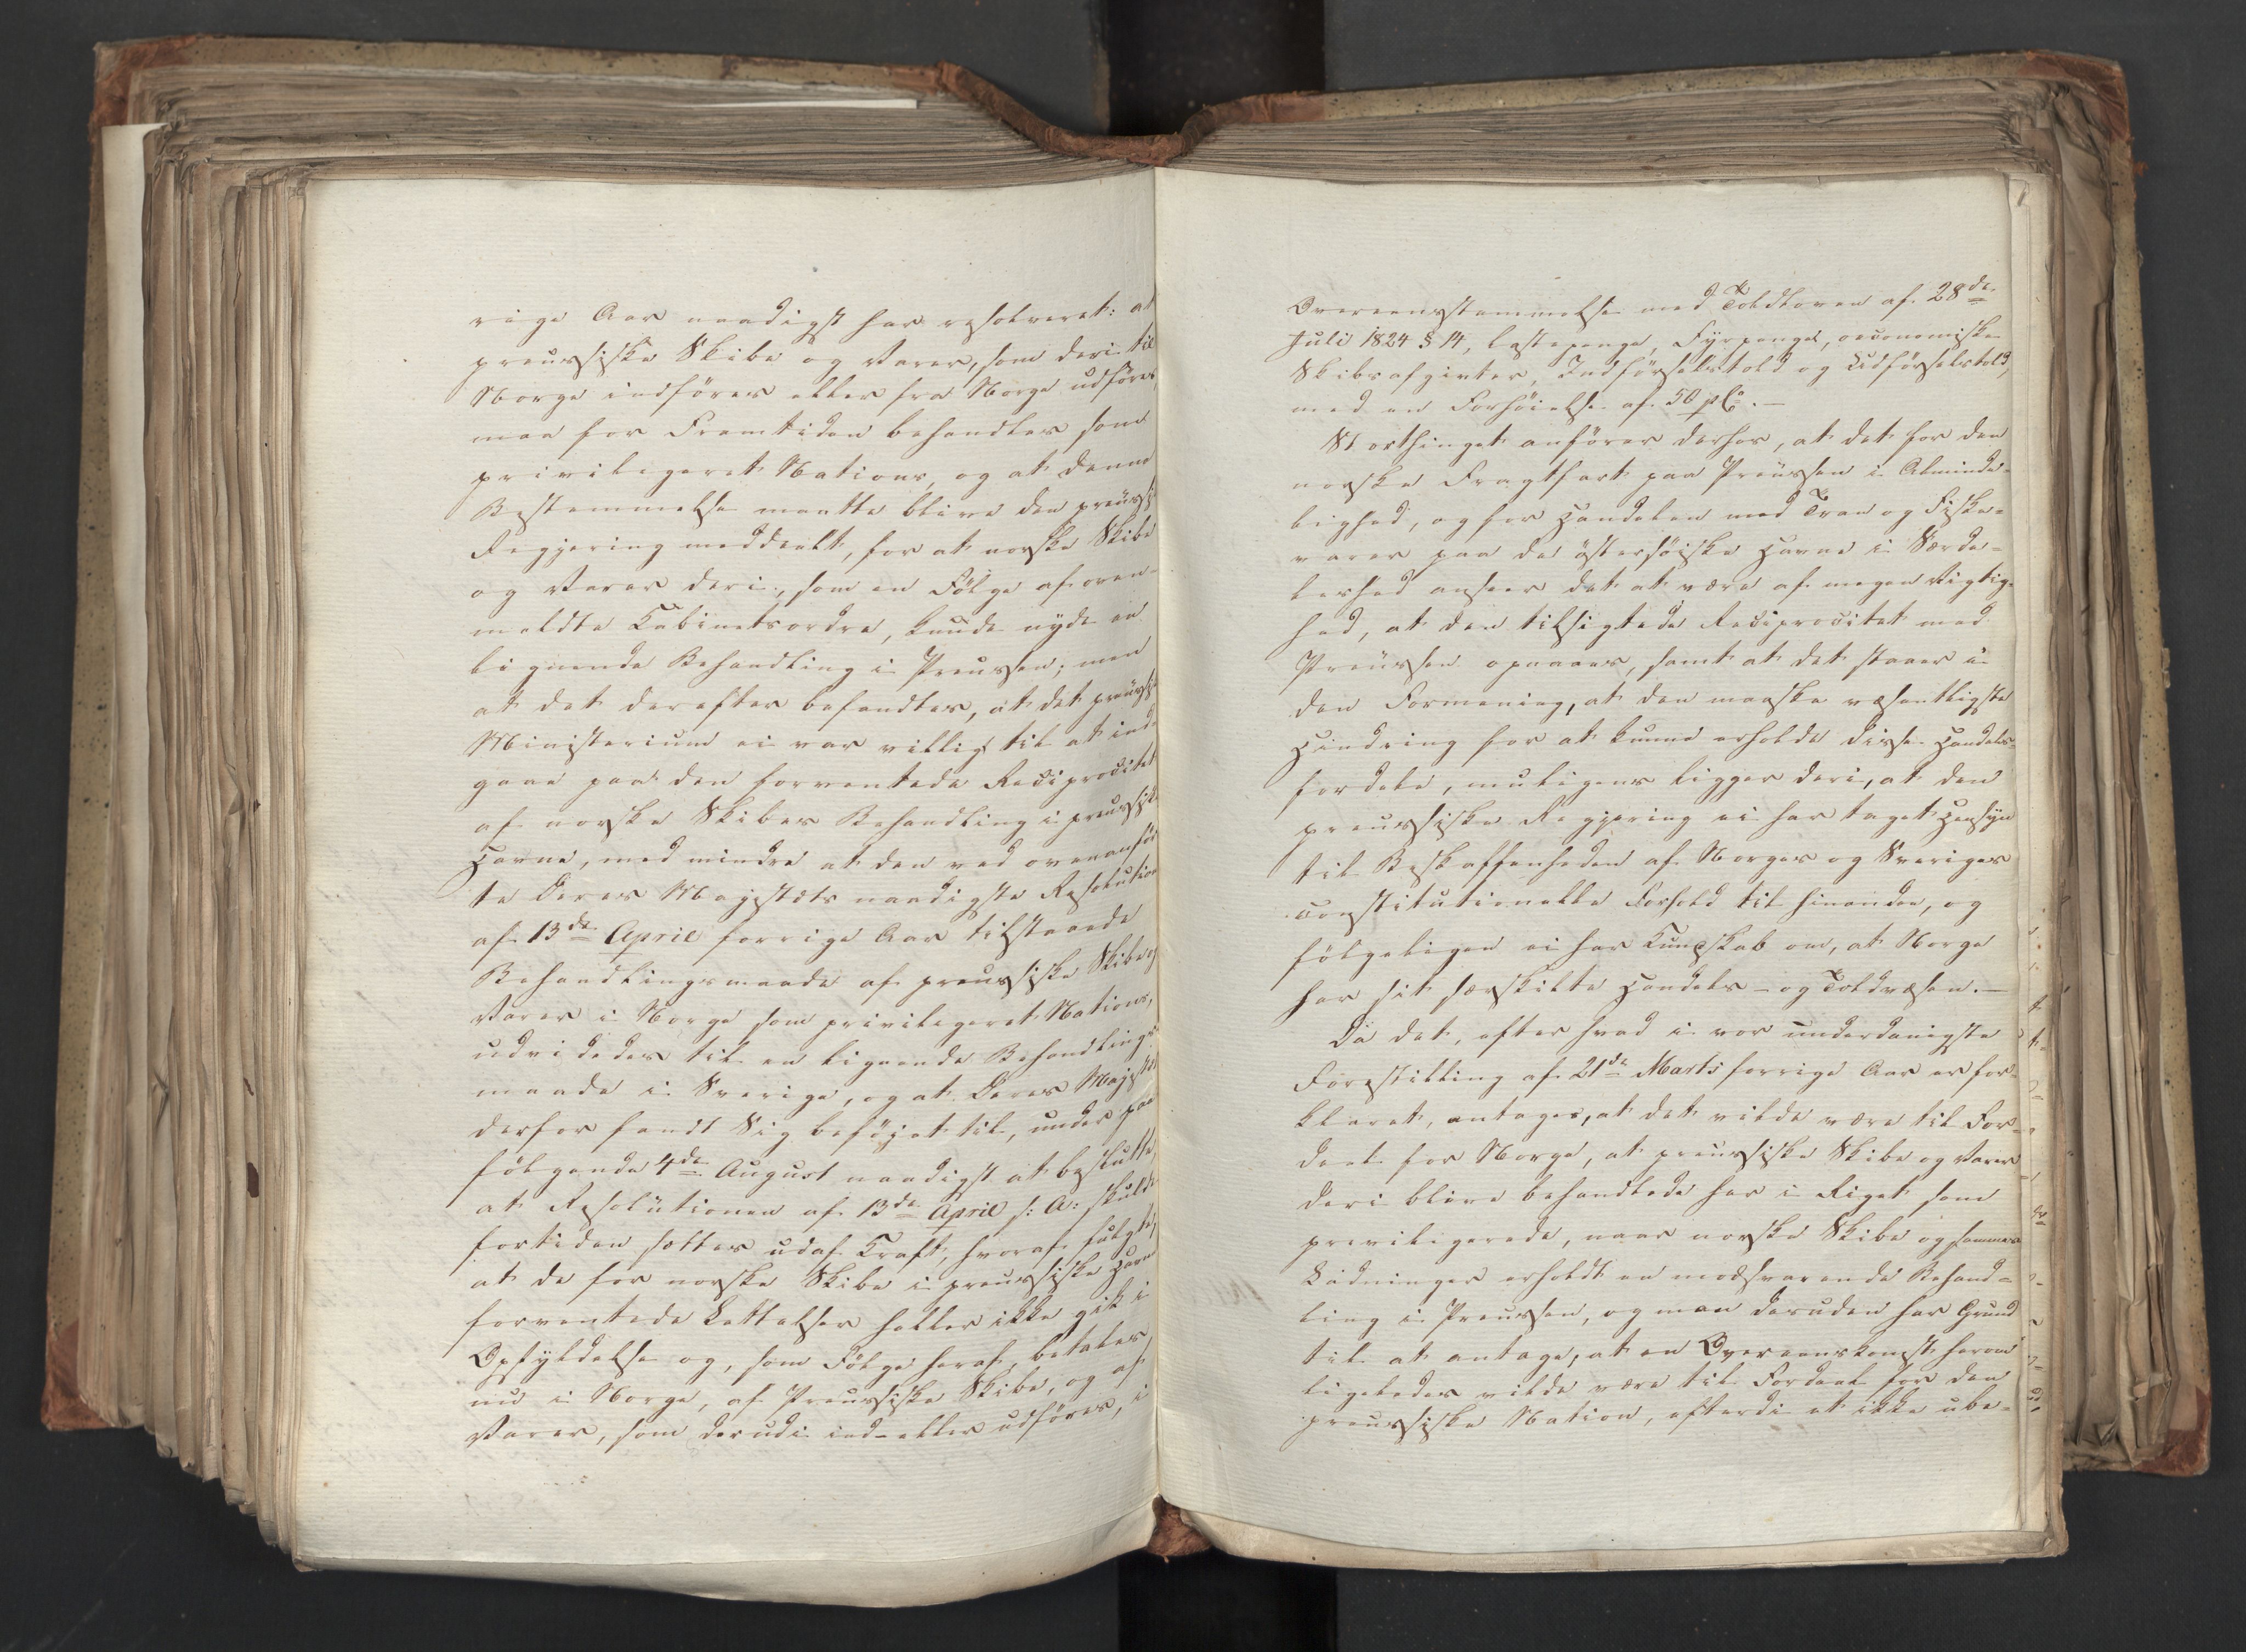 rige Aar naadigst har resolveret: at
preussiske Skibe og Varer, som deri til
Norge indføres eller fra Norge udføres,
maa for Fremtiden behandles som
privilegeret Nations, og at denne
Bestemmelse maatte blive den preussiske
Regjering meddeelt, for at norske Skibe
og Varer deri, som en Følge af oven-
meldte Cabinetsordre, kunde nyde en
lignende Behandling i Preussen; men
at det derefter befandtes, at det preussiske
Ministerium ei var villig til at ind-
gaae paa den forventede Reciprocitet
af norske Skibes Behandling i preussiske
Havne, med mindre at den ved ovenanfør-
te Deres Majestæts naadigste Resolution
af 13de April forrige Aar tilstaaede
Behandlingsmaade af preussiske Skibe og
Varer i Norge som privilegeret Nations,
udvidedes til en lignende Behandlings-
maade i Sverige, og at Deres Majestæt
derfor fandt Sig beføjet til, under paa-
følgende 4de August naadigst at beslutte,
at Resolutionen af 13de April s: A: skulde
fortiden sættes udaf Kraft, hvoraf fulgte,
at de for norske Skibe i preussiske Havne
forventede Lettelser heller ikke gik i
Opfyldelse og, som Følge heraf, betales
nu i Norge, af Preussiske Skibe, og af
Varer, som derudi ind- eller udføres, i
Overeensstemmelse med Toldloven af 28de
Juli 1824 § 14, Lastepenge, Fyrpenge, oeconomiske
Skibsafgivter, Indførselstold og Udførselstold,
med en Forhøielse af 50 pCo.-
Storthinget anfører derhos, at det for den
norske Fragtfart paa Preussen i Alminde-
lighed, og for Handelen med Tran og Fiske-
varer paa de østersøiske Havne i Særde-
leshed anseer det at være af megen Vigtig-
hed, at den tilsigtede Reciprocitet med
Preussen opnaaes, samt at det staaer i
den Formening, at den maaske væsentligste
Hindring for at kunne erholde disse Handels-
fordele, muligens ligger deri, at den
preussiske Regjering ei har taget Hensyn
til Beskaffenheden af Norges og Sveriges
constitutionelle Forhold til hinanden, og
følgeligen ei har Kundskab om, at Norge
har sit særskilte Handels- og Toldvæsen.-
Da det, efter hvad i vor underdanigste
Forestilling af 21de Marts forrige Aar er for-
klaret, antages, at det vilde være til For-
deel for Norge, at preussiske Skibe og Varer
deri blive behandlede her i Riget som
previligerede, naar norske Skibe og sammes
Ladninger erholdt en modsvarende Behand-
ling i Preussen, og man desuden har Grund
til at antage, at en Overeenskomst herom
ligeledes vilde være til Fordeel for den
preussiske Nation, efterdi et ikke ube-